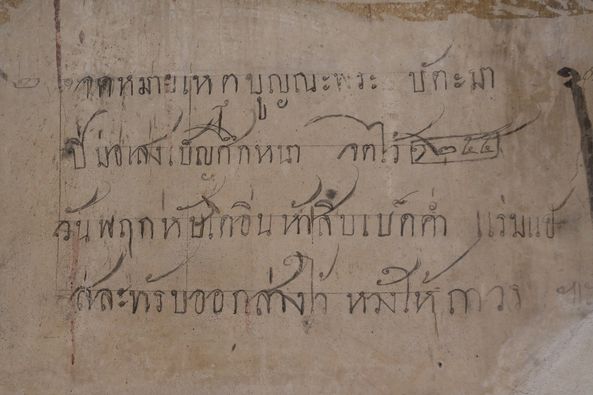 จดหมายเหตุ บูญณะพระ ปัตะมา
ปี มอเสง เบ็ญศักหนา จดไว้ ๑๒๕๕
วันพฤกหัษเดอืนห้าสิบเบ็ดค่ำ แร่มแ
สละทรับออกส่างไว้ หวังให้ถาวร